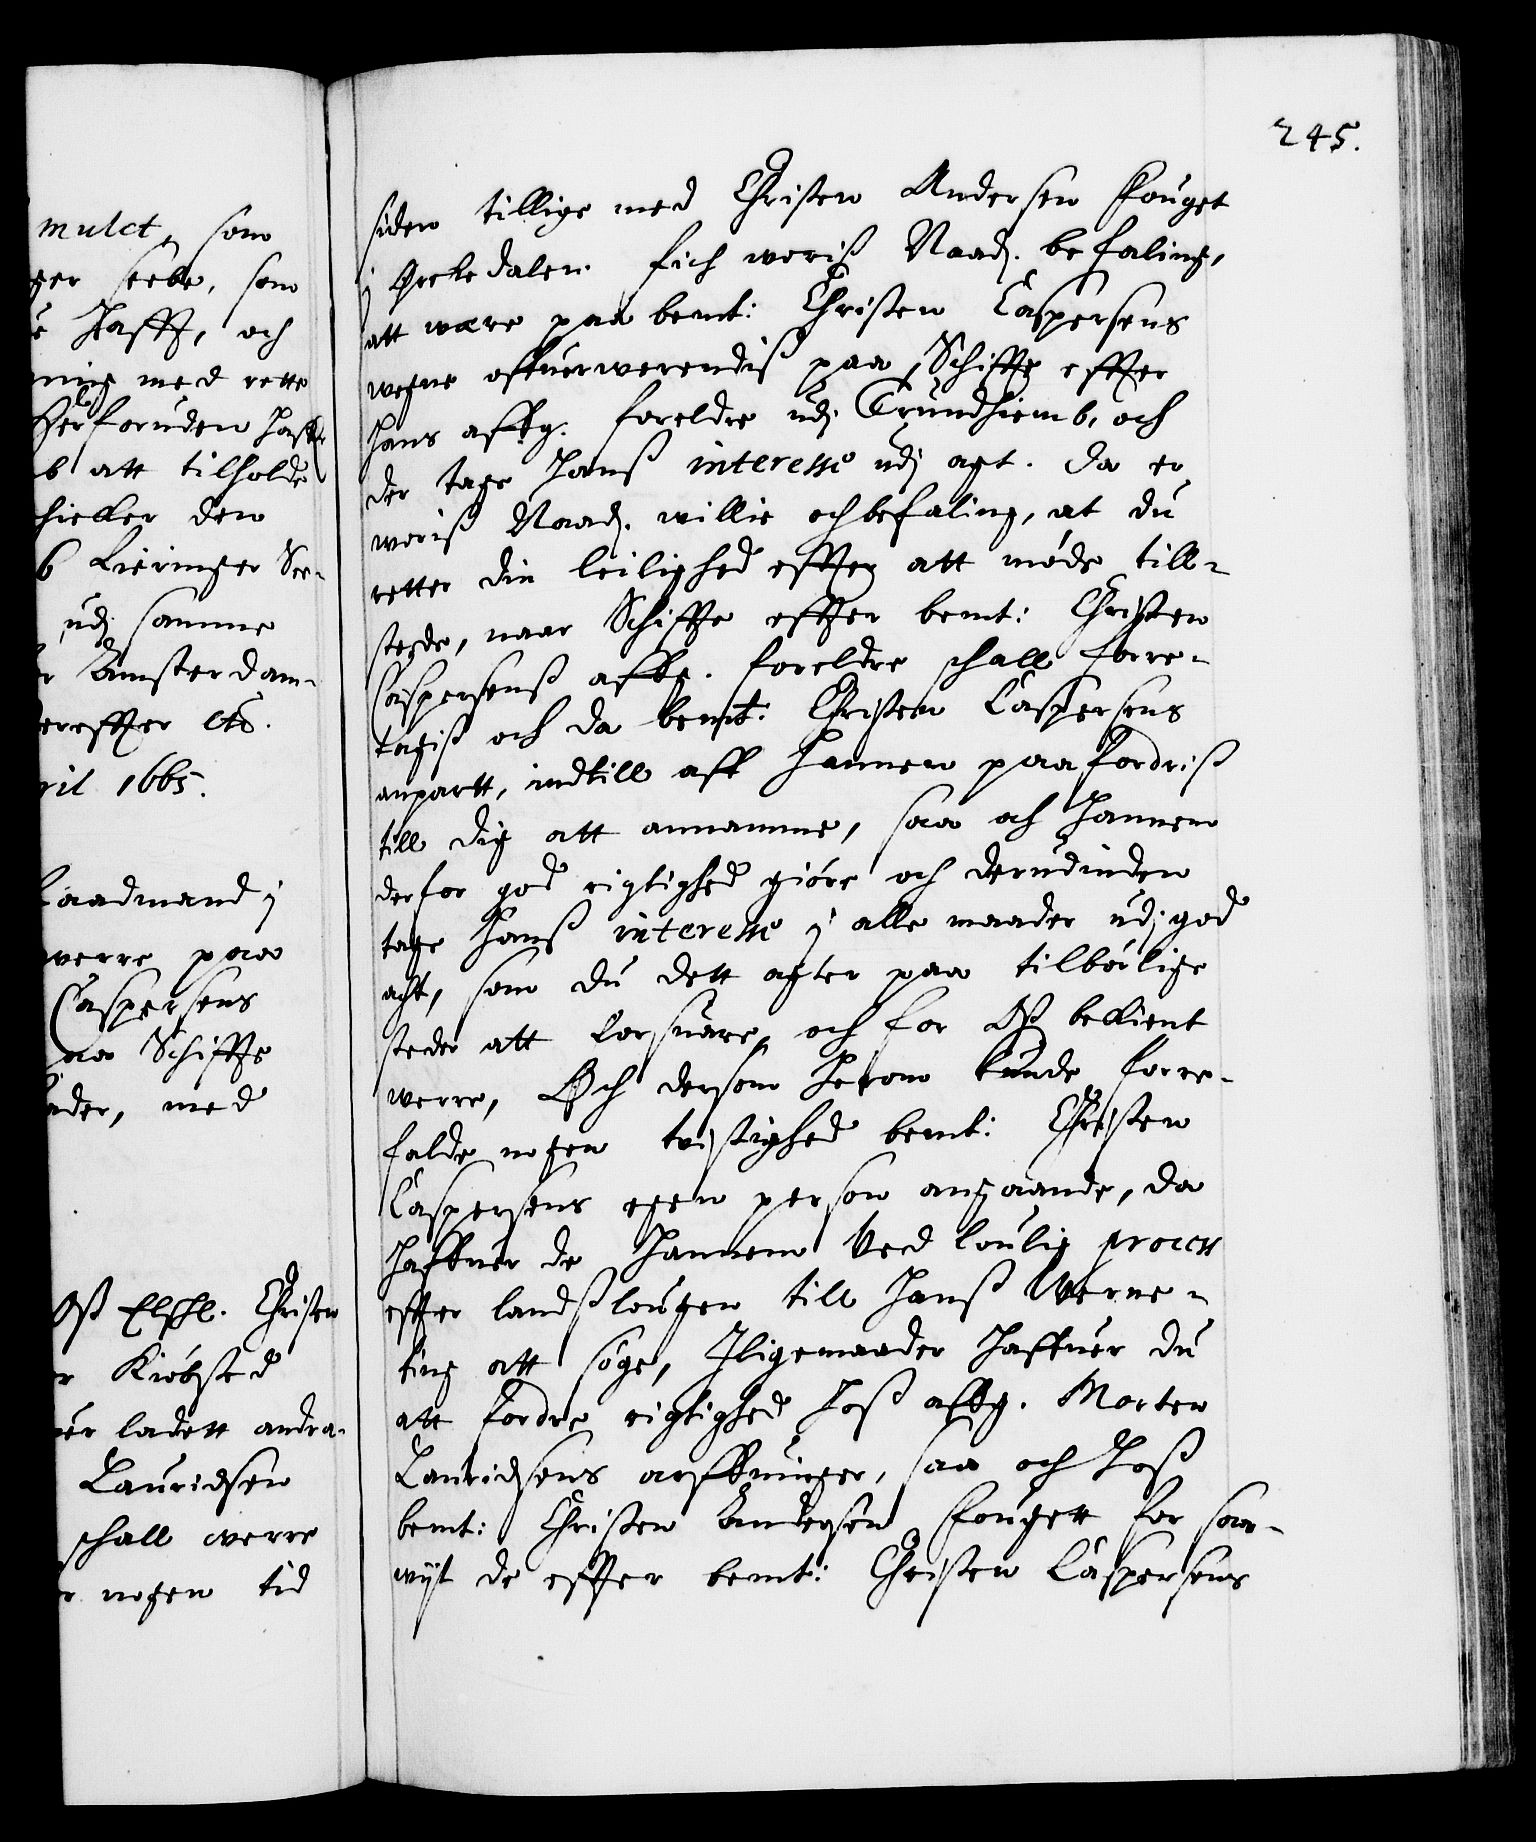 245.
mulct, som
ger selbe, som
Haffe, och
ning med rette
Herforuden haffr
b att tilholde
den
b Lieringer See-
udj samme
r Amsterdam-
dereffter etc.
ril 1665.
Raadmand j
werre paa
Caspersens
paa Schiffte
ader, med
Oss Elschl. Christen
r Kiøbsted
uer ladett andra-
Lauridsen
schall werre
r nogen tid
siden tillige med Christen Andersen Fouget
j Orckedalen fich woriß Naad. befaling,
att wære paa bemt: Christen Caspersens
wegne offuerwerendiß paa Schiffte effter
hans affg. foreldre udj Trundhiemb, och
der tage hanß interesse udj agt. Da er
woriß Naad. willie och befaling, at du
retter din leilighed effter att møde till-
stede, naar Schiffte effter bemt: Christen
Caspersenß affg. foreldre schall forre-
tagiß och da bemt: Christen Caspersens
anpartt, indtill aff hannem paafordriß
till dig att annamme, saa och hannem
derfor god rigtighed giøre och derudinden
tage hanß interesse j alle maader udj god
agt, som du dett agter paa tilbørlige
steder att forsuare, och for Oß bekient
werre, Och dersom herom kunde forre-
falde nogen tuistighed bemt: Christen
Caspersens egen person angaande, da
haffuer de hannem ved loulig process
effter landßlougen till hanß Werne-
ting att søge, Jligemaader haffuer du
att fordre rigtighed hoß affg. Morten
Lauridsens arffuinger, saa och hoß
bemt: Christen Andersen fougett for saa-
wijt de effter bemt: Christen Caspersens